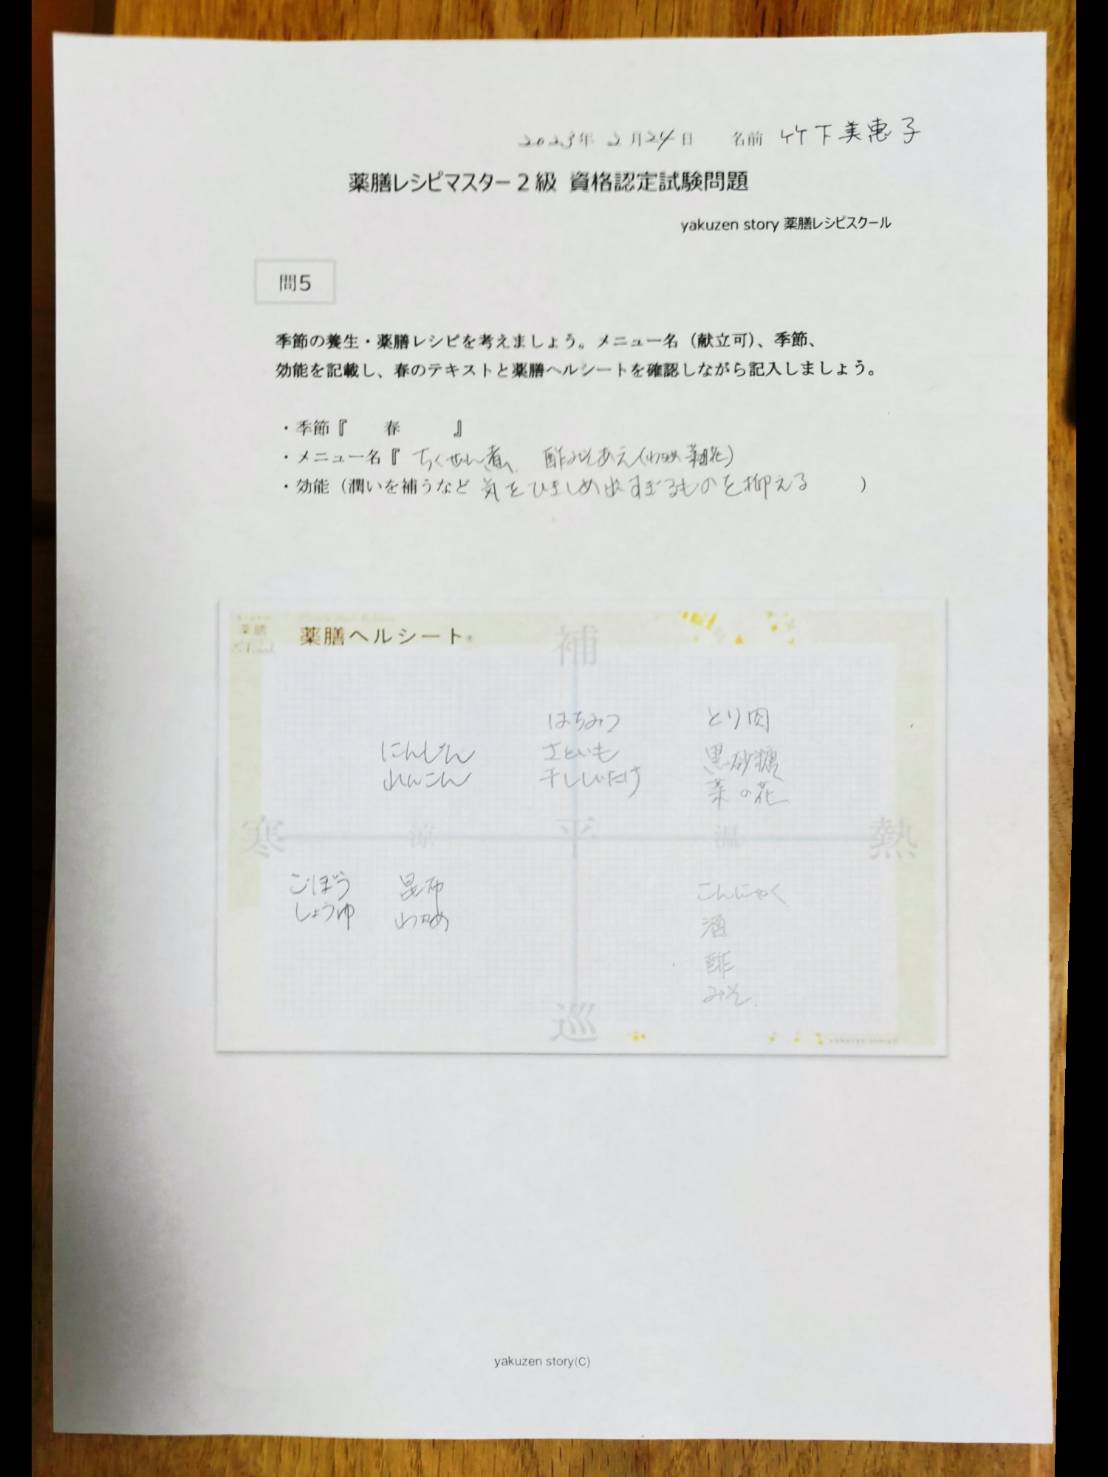 2023年 2月24日 名前 竹下美恵子
薬膳レシピマスター2級 資格認定試験問題
yakuzen story 薬膳レシピスクール
問5
季節の養生・薬膳レシピを考えましょう。メニュー名（献立可）、季節、
効能を記載し、春のテキストと薬膳ヘルシートを確認しながら記入しましょう。
・季節『 春 』
・メニュー名『 ちくぜん煮、 酢みそあえ(わかめ 菜の花)
・効能（潤いを補うなど 気をひきしめ出すぎるものを抑える ）
薬膳
薬膳ヘルシート
補
はちみつ とり肉
にんじん さといも 黒砂糖
れんこん 干ししいたけ 菜の花
寒 涼 平 温 熱
ごぼう 昆布 こんにゃく
しょうゆ わかめ 酒
酢
みそ
巡
yakuzen story(C)